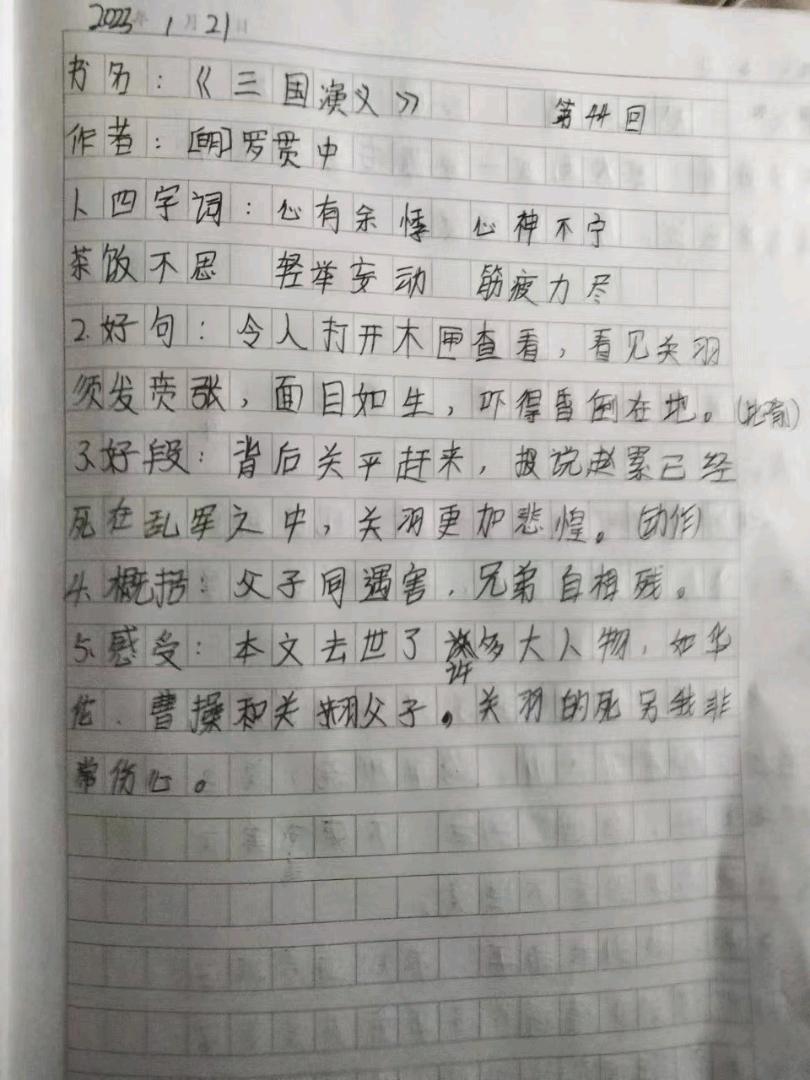 2023年 1月 21日
书名：《三国演义》 第44回
作者：[明]罗贯中
1、四字词：心有余悸 心神不宁
茶饭不思 轻举妄动 筋疲力尽
2.好句：令人打开木匣查看，看见关羽
须发贲张，面目如生，吓得昏倒在地。
3.好段：背后关平赶来，报说赵累已经
死在乱军之中，关羽更加悲惶。(动作)
4.概括：父子同遇害，兄弟自相残。
5.感受：本文去世了许多大人物，如华
佗、曹操和关羽父子。关羽的死另我非
常伤心。